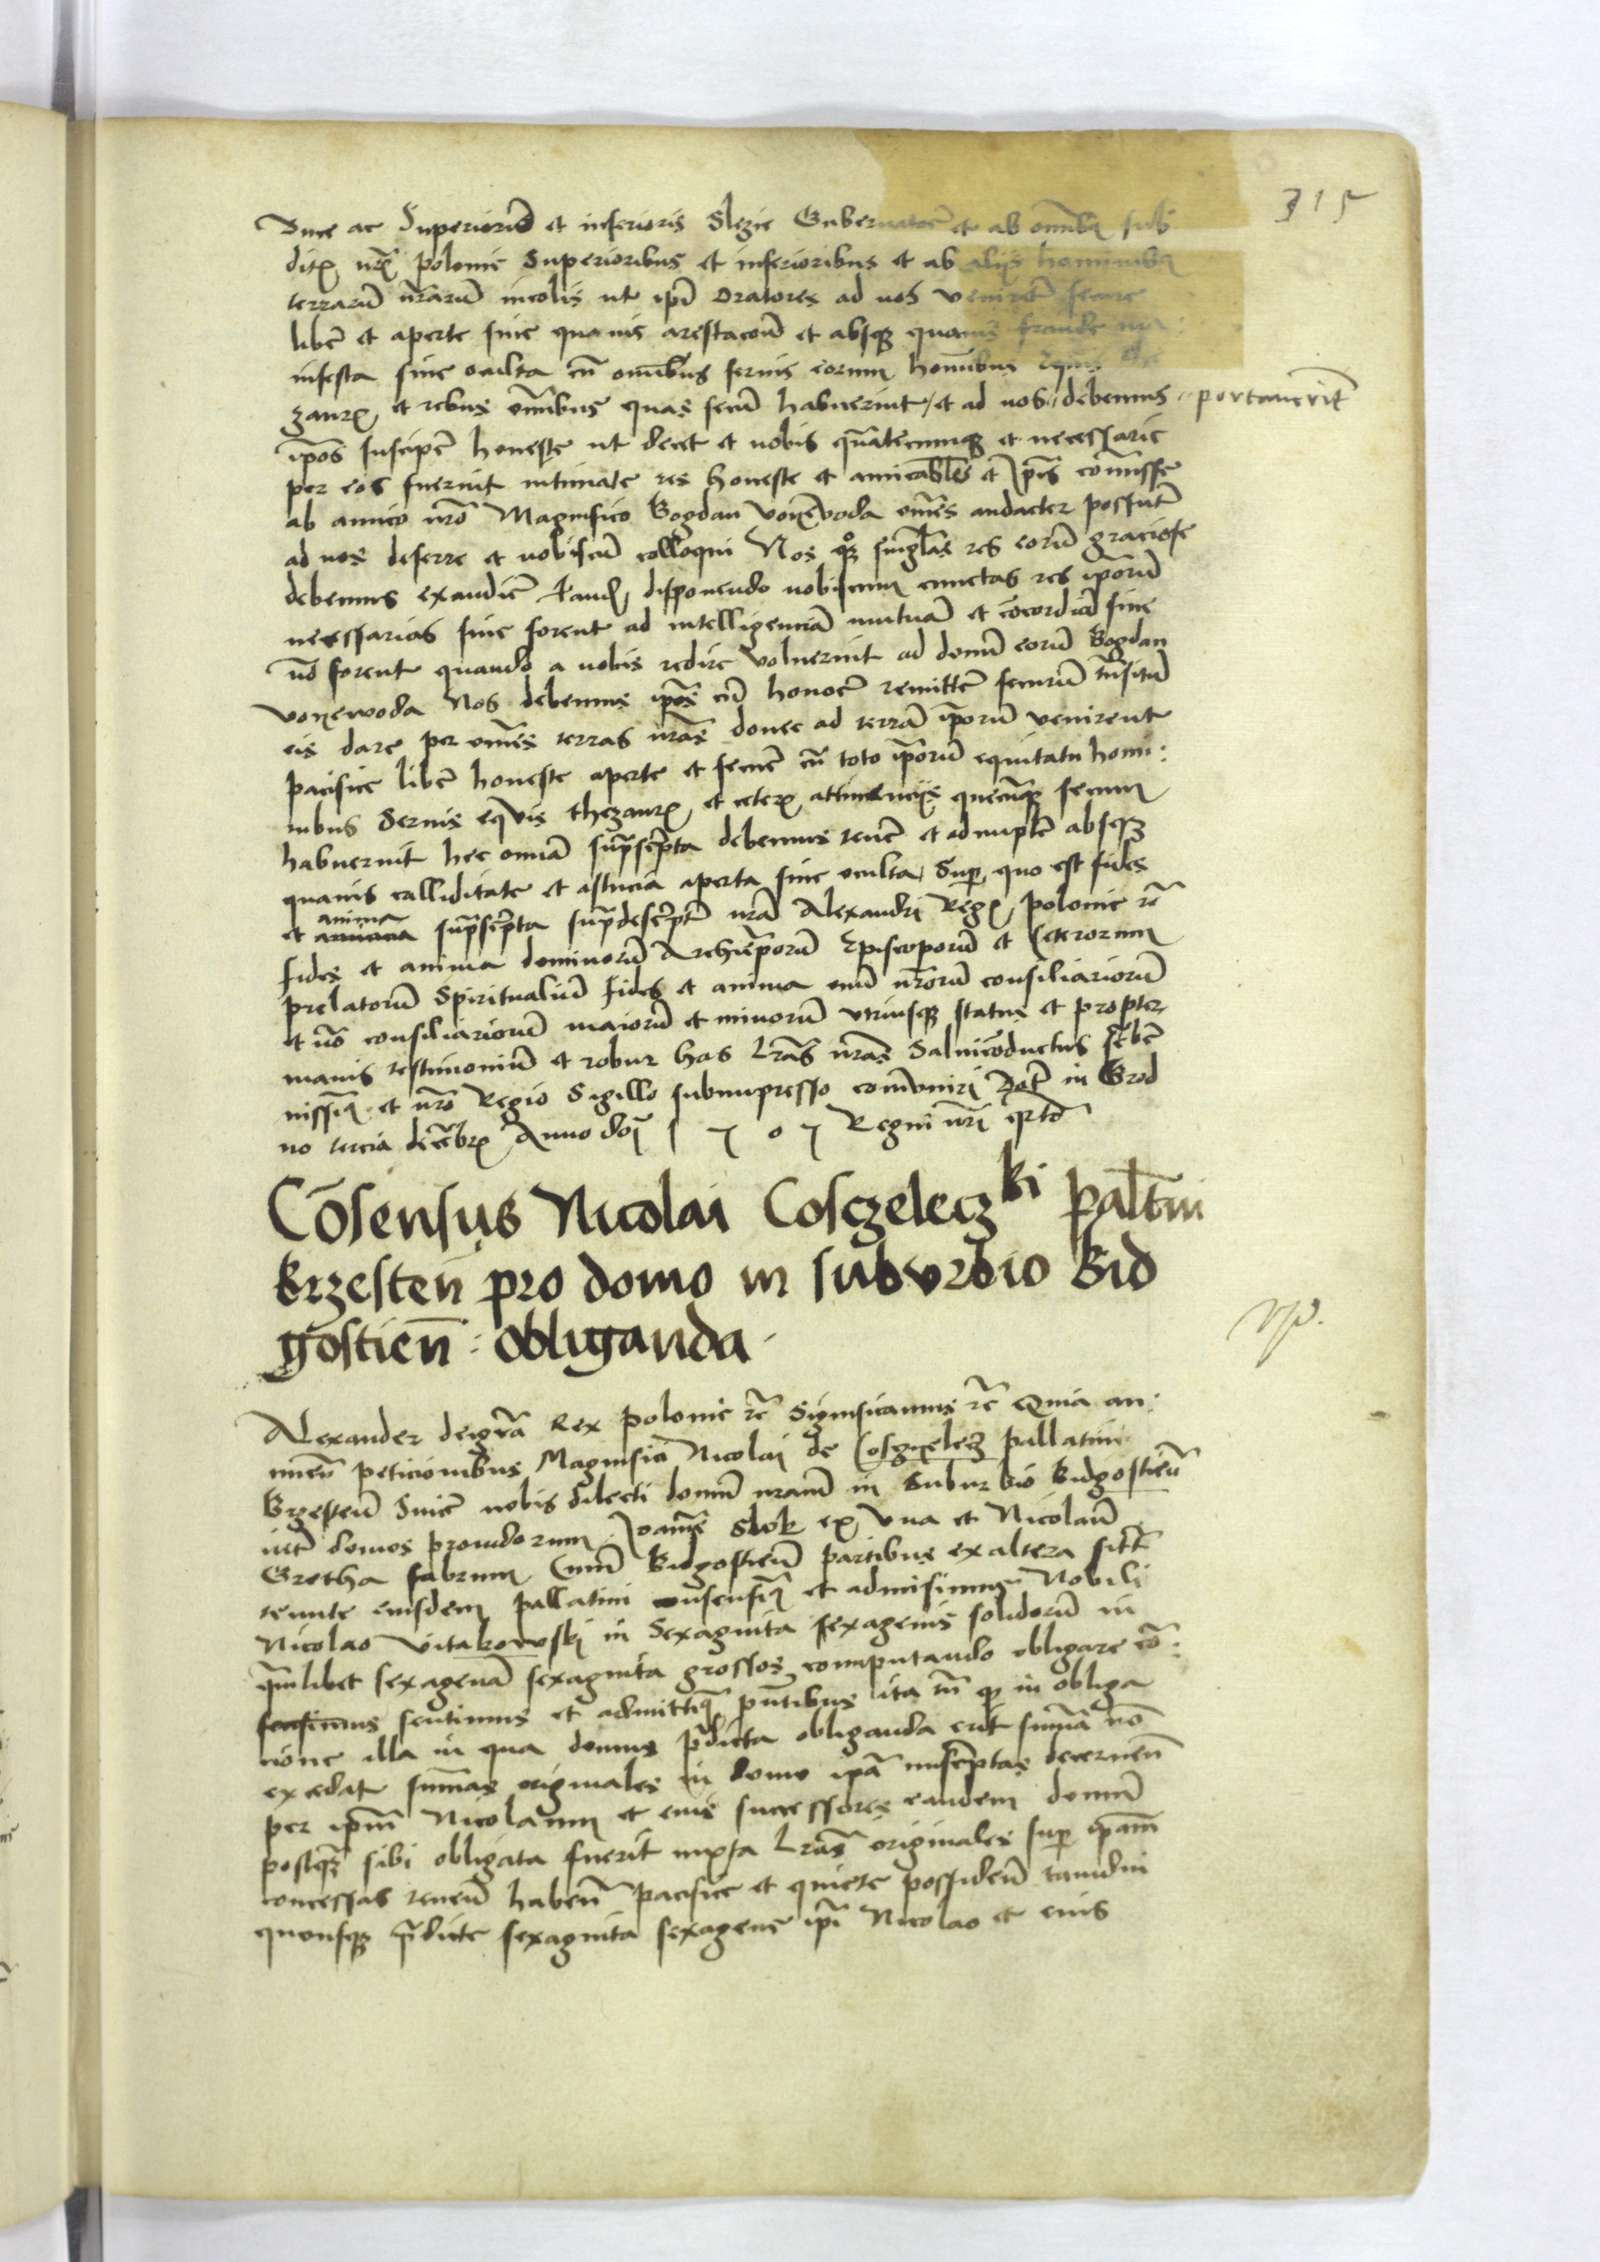 315
Duce ac Superiorũ et inferioris Slezie Gubernatore et ab omnib⁹ sub
ditꝭ nr̃ꝭ polonie Superioribus et inferioribus et ab alijs hominibus
terrarũ nr̃arũ incolis ut ip̃i Oratores ad nos venirẽt secure
liberẽ et aperte sine quauis arestacõe et absqꝫ quauis fraude
infesta siue oculta cũ omnibus seruis eorum hom̃ibus equis
zaurꝭ et rebus om̃ibus quas secũ habuerint et ad nos portauerĩt debemus
ip̃os suscipe honeste ut decet et nobis quãlecumqꝫ et necessarie
per eos fuerint intimate res honeste et amicabl̃es et ip̃is com̃isse
ab amico nr̃o Magnifico Bogdan voyevoda om̃es audacter possut
ad nos deferre et nobiscũ colloqui Nos qꝫ singl̃as res eorũ graciose
debemus exaudire disponendo nobiscum cunctas res ip̃orũ
necessarias siue forent ad intelligenciã mutuã et cõcordiã siue
nõ forent quando a nobis redire voluerint ad domũ eorũ Bogdan
voyewoda Nos debemus ip̃os cũ honore remittẽ securũ trãsitũ
eis dare per om̃es terras nr̃as donec ad terrã ip̃orũ venirent
pacifice liberẽ honeste aperte et secure cũ toto ip̃orũ equitatu homi:
nibus Seruis equis thezaurꝭ et ceterꝭ attinencijs quecũqꝫ secum
habuerint hec omnia sup̃scripta debemus tenẽ et adimplẽ absqꝫ
quauis calliditate et astucia aperta siue oculta Sup̃ quo est fides
et anima sup̃scripta sup̃descripti nr̃a Alexandri Regꝭ polonie rc̃
fides et anima dominorũ Archiep̃orũ Episcoporũ et Ceterorum
prelatorũ Spiritualiũ fides et anima om̃iũ nr̃orũ consiliariorũ
et nõ consiliariorũ maiorũ et minorũ vtriusqꝫ status et propter
maius testimoniũ et robur has l̃ras nr̃as Saluicõductus scribẽ
nissimꝰ et nr̃o Regio Sigillo subimpresso com̃uniri Dat̃ in Grod
no tercia decẽbrꝭ Anno dñi 1505 Regni nr̃i qr̃to
Cõsensus Nicolai Cosczeleczki pal̃tini
Brzesteñ pro domo in suburbio Bid
gostieñ: obliganda.
Alexander dei gr̃a Rex polonie rc̃ Significamus rc̃ Quia an:
nueñ peticionibus Magnifici Nicolai de Cosczelecz pallatini
Brzesteñ Sincẽ nobis dilecti domũ nram̃ in Suburbio Bidgostieñ
intẽ domos prouidorum Joannẽ Slok ex vna et Nicolaũ
Gretha fabrum Ciuiũ Bidgostieñ partibus ex altera sitã
tenute eiusdem pallatini consensimꝰ et admisimus Nobili
Nicolao Vitakowski in Sexaginta sexagenis solidorũ in
q̃mlibet sexagenã sexaginta grossos computando obligare cõ:
sentimus et admittimꝰ pñtibus ita tñ qꝫ in obliga
cione illa in qua domus p̃dicta obliganda erit sum̃a nõ
excedat sum̃as originales in domo ip̃a inscriptas decerneñ
per ip̃m Nicolaum et eius successores eandem domũ
postqꝫ sibi obligata fuerit iuxta l̃ras originales sup̃ ip̃am
concessas teneñ habeñ pacifice et quiete possideñ tamdiu
quousqꝫ p̃dicte sexaginta sexagene ip̃i Nicolao et eius